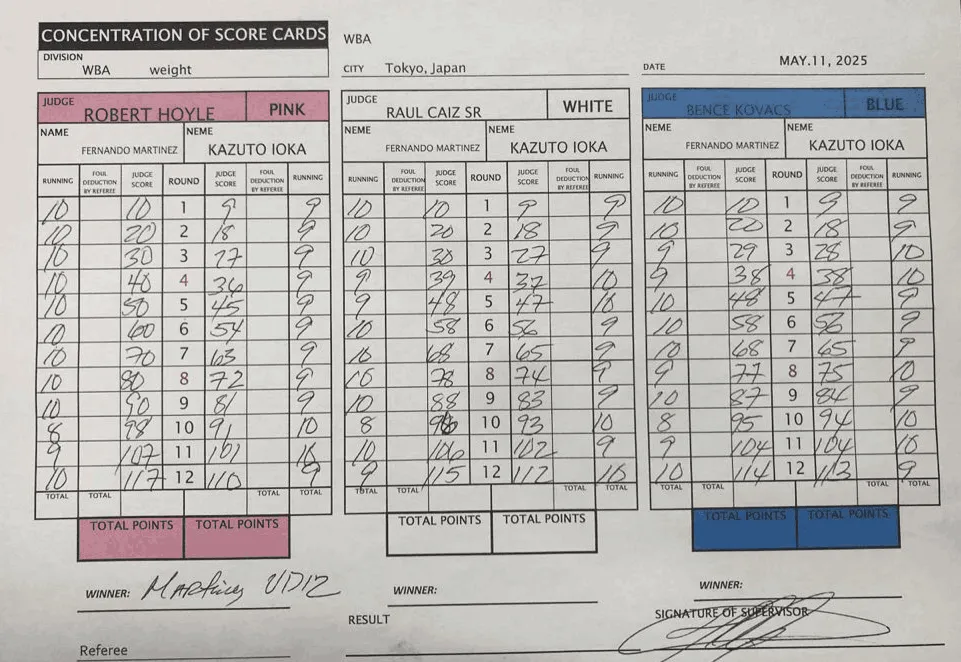 CONCENTRATION OF SCORE CARDS
WBA
DIVISION
WBA weight
CITY Tokyo, Japan
DATE MAY.11, 2025
JUDGE ROBERT HOYLE PINK
NAME FERNANDO MARTINEZ NEME KAZUTO IOKA
RUNNING FOUL DEDUCTION BY REFEREE JUDGE SCORE ROUND JUDGE SCORE FOUL DEDUCTION BY REFEREE RUNNING
10 10 1 9 9
10 20 2 18 9
10 30 3 27 9
10 40 4 36 9
10 50 5 45 9
10 60 6 54 9
10 70 7 63 9
10 80 8 72 9
10 90 9 81 9
8 98 10 91 10
9 107 11 101 10
10 117 12 110 9
TOTAL TOTAL TOTAL TOTAL
TOTAL POINTS TOTAL POINTS
WINNER: Martinez UD12
Referee
JUDGE RAUL CAIZ SR WHITE
NEME FERNANDO MARTINEZ NEME KAZUTO IOKA
RUNNING FOUL DEDUCTION BY REFEREE JUDGE SCORE ROUND JUDGE SCORE FOUL DEDUCTION BY REFEREE RUNNING
10 10 1 9 9
10 20 2 18 9
10 30 3 27 9
9 39 4 37 10
9 48 5 47 10
10 58 6 56 9
10 68 7 65 9
10 78 8 74 9
10 88 9 83 9
8 96 10 93 10
10 106 11 102 9
9 115 12 112 10
TOTAL TOTAL TOTAL TOTAL
TOTAL POINTS TOTAL POINTS
WINNER:
RESULT
JUDGE BENCE KOVACS BLUE
NEME FERNANDO MARTINEZ NEME KAZUTO IOKA
RUNNING FOUL DEDUCTION BY REFEREE JUDGE SCORE ROUND JUDGE SCORE FOUL DEDUCTION BY REFEREE RUNNING
10 10 1 9 9
10 20 2 18 9
9 29 3 28 10
9 38 4 38 10
10 48 5 47 9
10 58 6 56 9
10 68 7 65 9
9 77 8 75 10
10 87 9 84 9
8 95 10 94 10
9 104 11 104 10
10 114 12 113 9
TOTAL TOTAL TOTAL TOTAL
TOTAL POINTS TOTAL POINTS
WINNER:
SIGNATURE OF SUPERVISOR